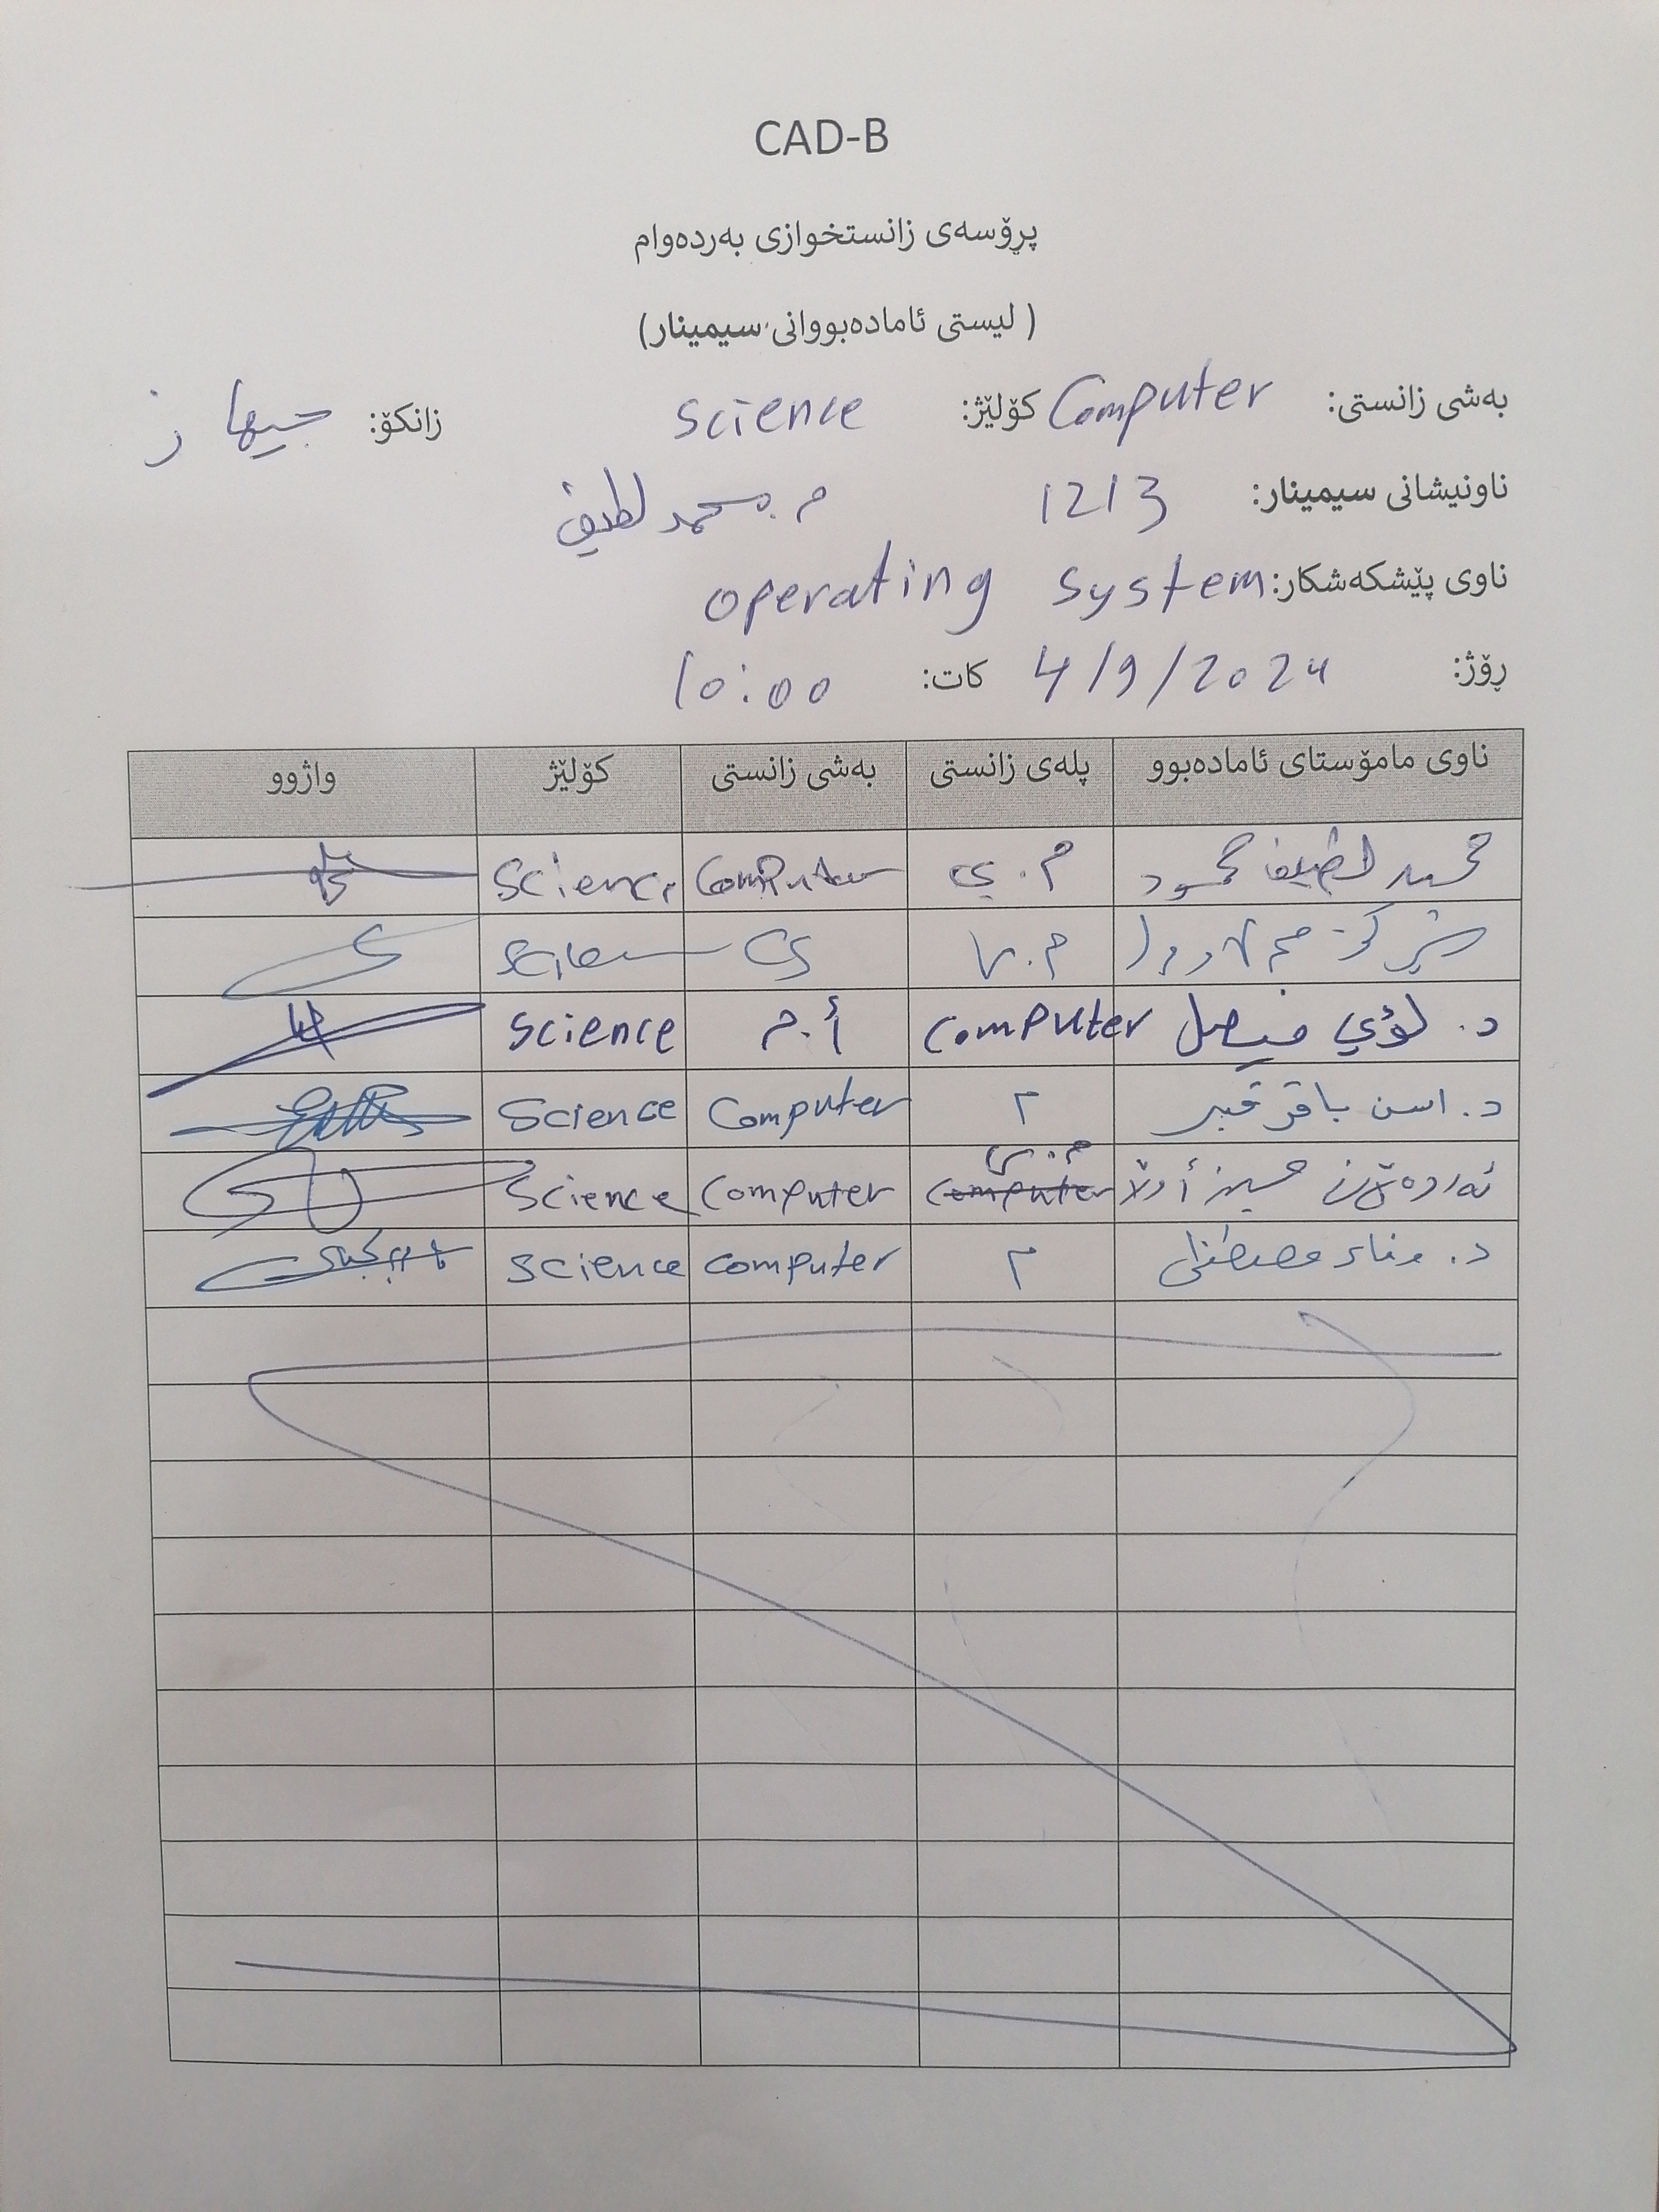 CAD-B
پڕۆسەی زانستخوازی بەردەوام
( لیستی ئامادەبووانی سیمینار)
بەشی زانستی: Computer کۆلێژ: Science زانکۆ: جیهان
ناونیشانی سیمینار: 1213 م. محمد لطيف
ناوی پێشکەشکار: operating system
ڕۆژ: 4/9/2024 کات: 10:00
ناوی مامۆستای ئامادەبوو پلەی زانستی بەشی زانستی کۆلێژ واژوو
محمد لطيف محمود م.ي Computer Science
م.ي CS Science
د. لؤي فيصل computer أ.م Science
د. اسن باقر قنبر م Computer Science
حسين م.ي computer computer Science
د. وفاء مصطفى م computer Science